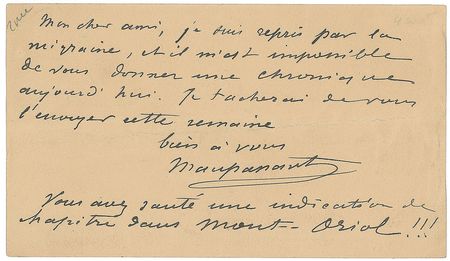 Mon cher ami, je suis repris par la
migraine, et il m'est impossible
de vous donner une chronique
aujourd'hui. Je tacherai de vous
l'envoyer cette semaine
bien à vous
Maupassant
Vous avez sauté une indication de
chapitre dans Mont-Oriol!!!